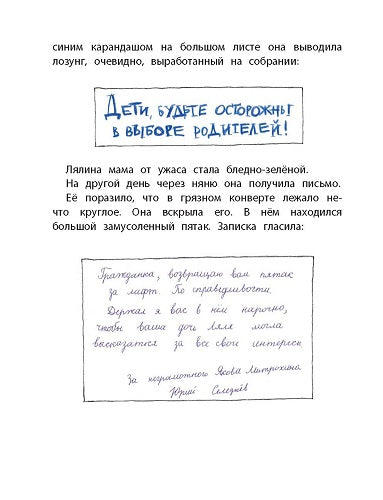 синим карандашом на большом листе она выводила
лозунг, очевидно, выработанный на собрании:
ДЕТИ, БУДЬТЕ ОСТОРОЖНЫ
В ВЫБОРЕ РОДИТЕЛЕЙ!
Лялина мама от ужаса стала бледно-зелёной.
На другой день через няню она получила письмо.
Её поразило, что в грязном конверте лежало не-
что круглое. Она вскрыла его. В нём находился
большой замусоленный пятак. Записка гласила:
Гражданка, возвращаю вам пятак
за лифт. По справедливости.
Держал я вас в нем нарочно,
чтобы ваша дочь Ляля могла
высказаться за все свои интересы
За неграмотного Якова Митрохина
Юрий Селезнёв